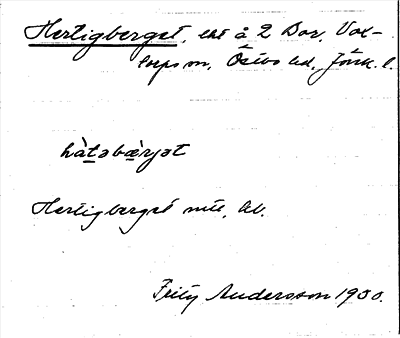 Hertigberget, eht å 2 Bor, Vox-
torps sn, Östbo hd, Jönk. l.
hàtəbæ̀rjət
Hertigberget mtl, ab.
Fritz Andersson 1930.